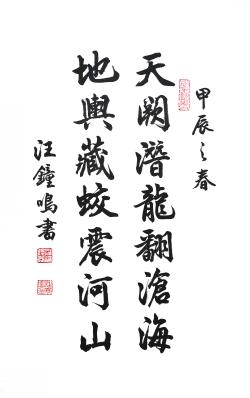 甲辰之春
天阙潜龍翻滄海
地輿藏蛟震河山
汪鐘鳴書